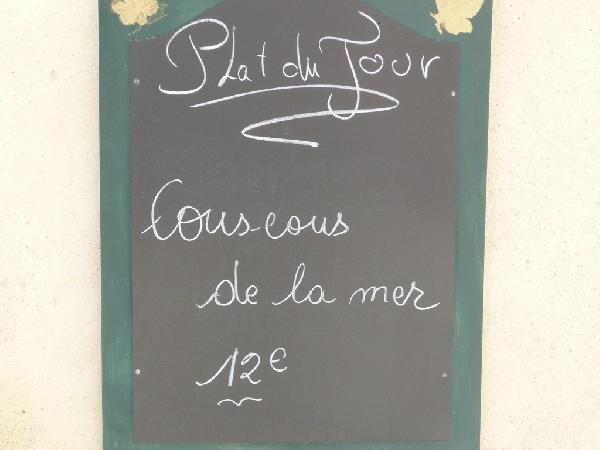 Plat du Jour
Couscous
de la mer
12€